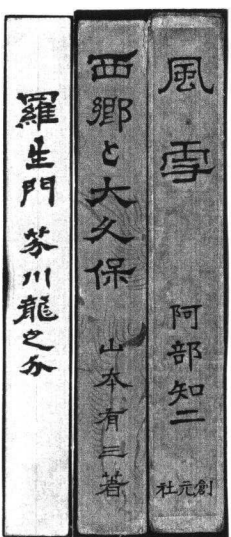 風雪
阿部知二
創元社
西郷と大久保
山本有三著
羅生門
芥川龍之介